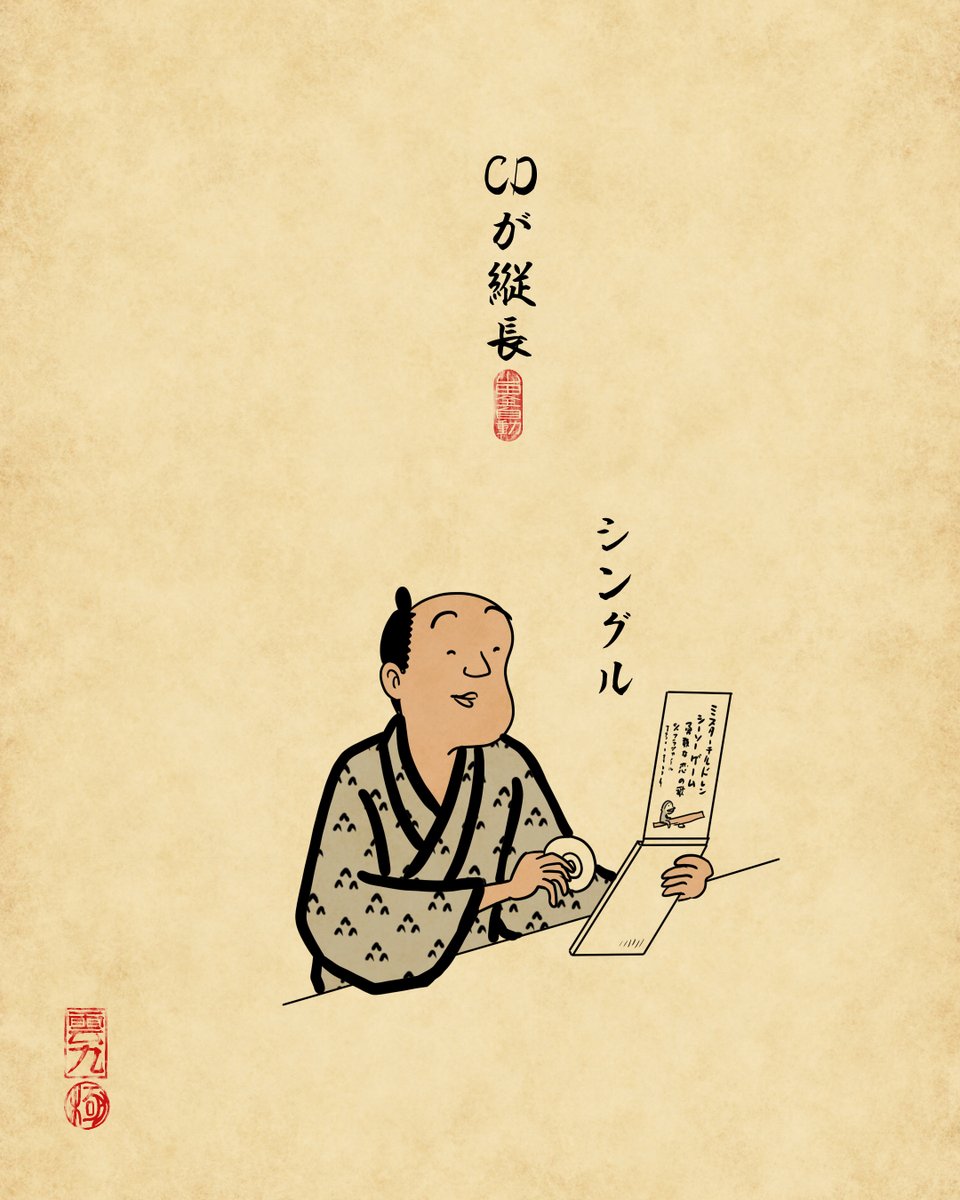 CDが縦長
シングル
ミスターチルドレン
シーソーゲーム
勇敢な恋の歌
雲九
極